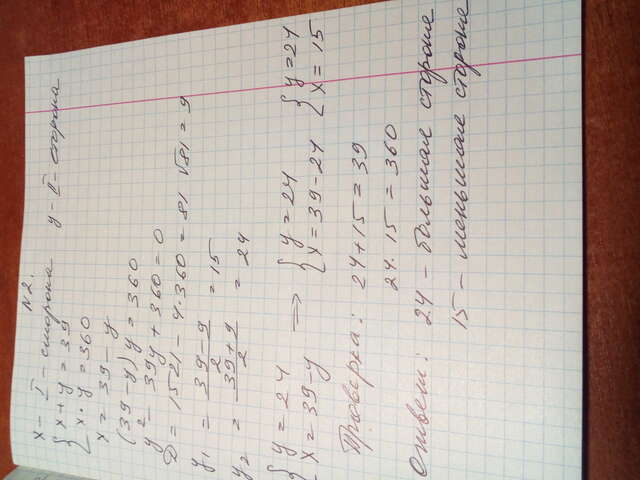 №2.
x - I - сторона y - II - сторона
{ x + y = 39
{ x · y = 360
x = 39 - y
(39 - y) y = 360
y² - 39y + 360 = 0
D = 1521 - 4·360 = 81 √81 = 9
y₁ = (39 - 9)/2 = 15
y₂ = (39 + 9)/2 = 24
{ y = 24 ⇒ { y = 24 { y = 24
{ x = 39 - y { x = 39 - 24 { x = 15
Проверка: 24 + 15 = 39
24 · 15 = 360
Ответ: 24 - большая сторона
15 - меньшая сторона